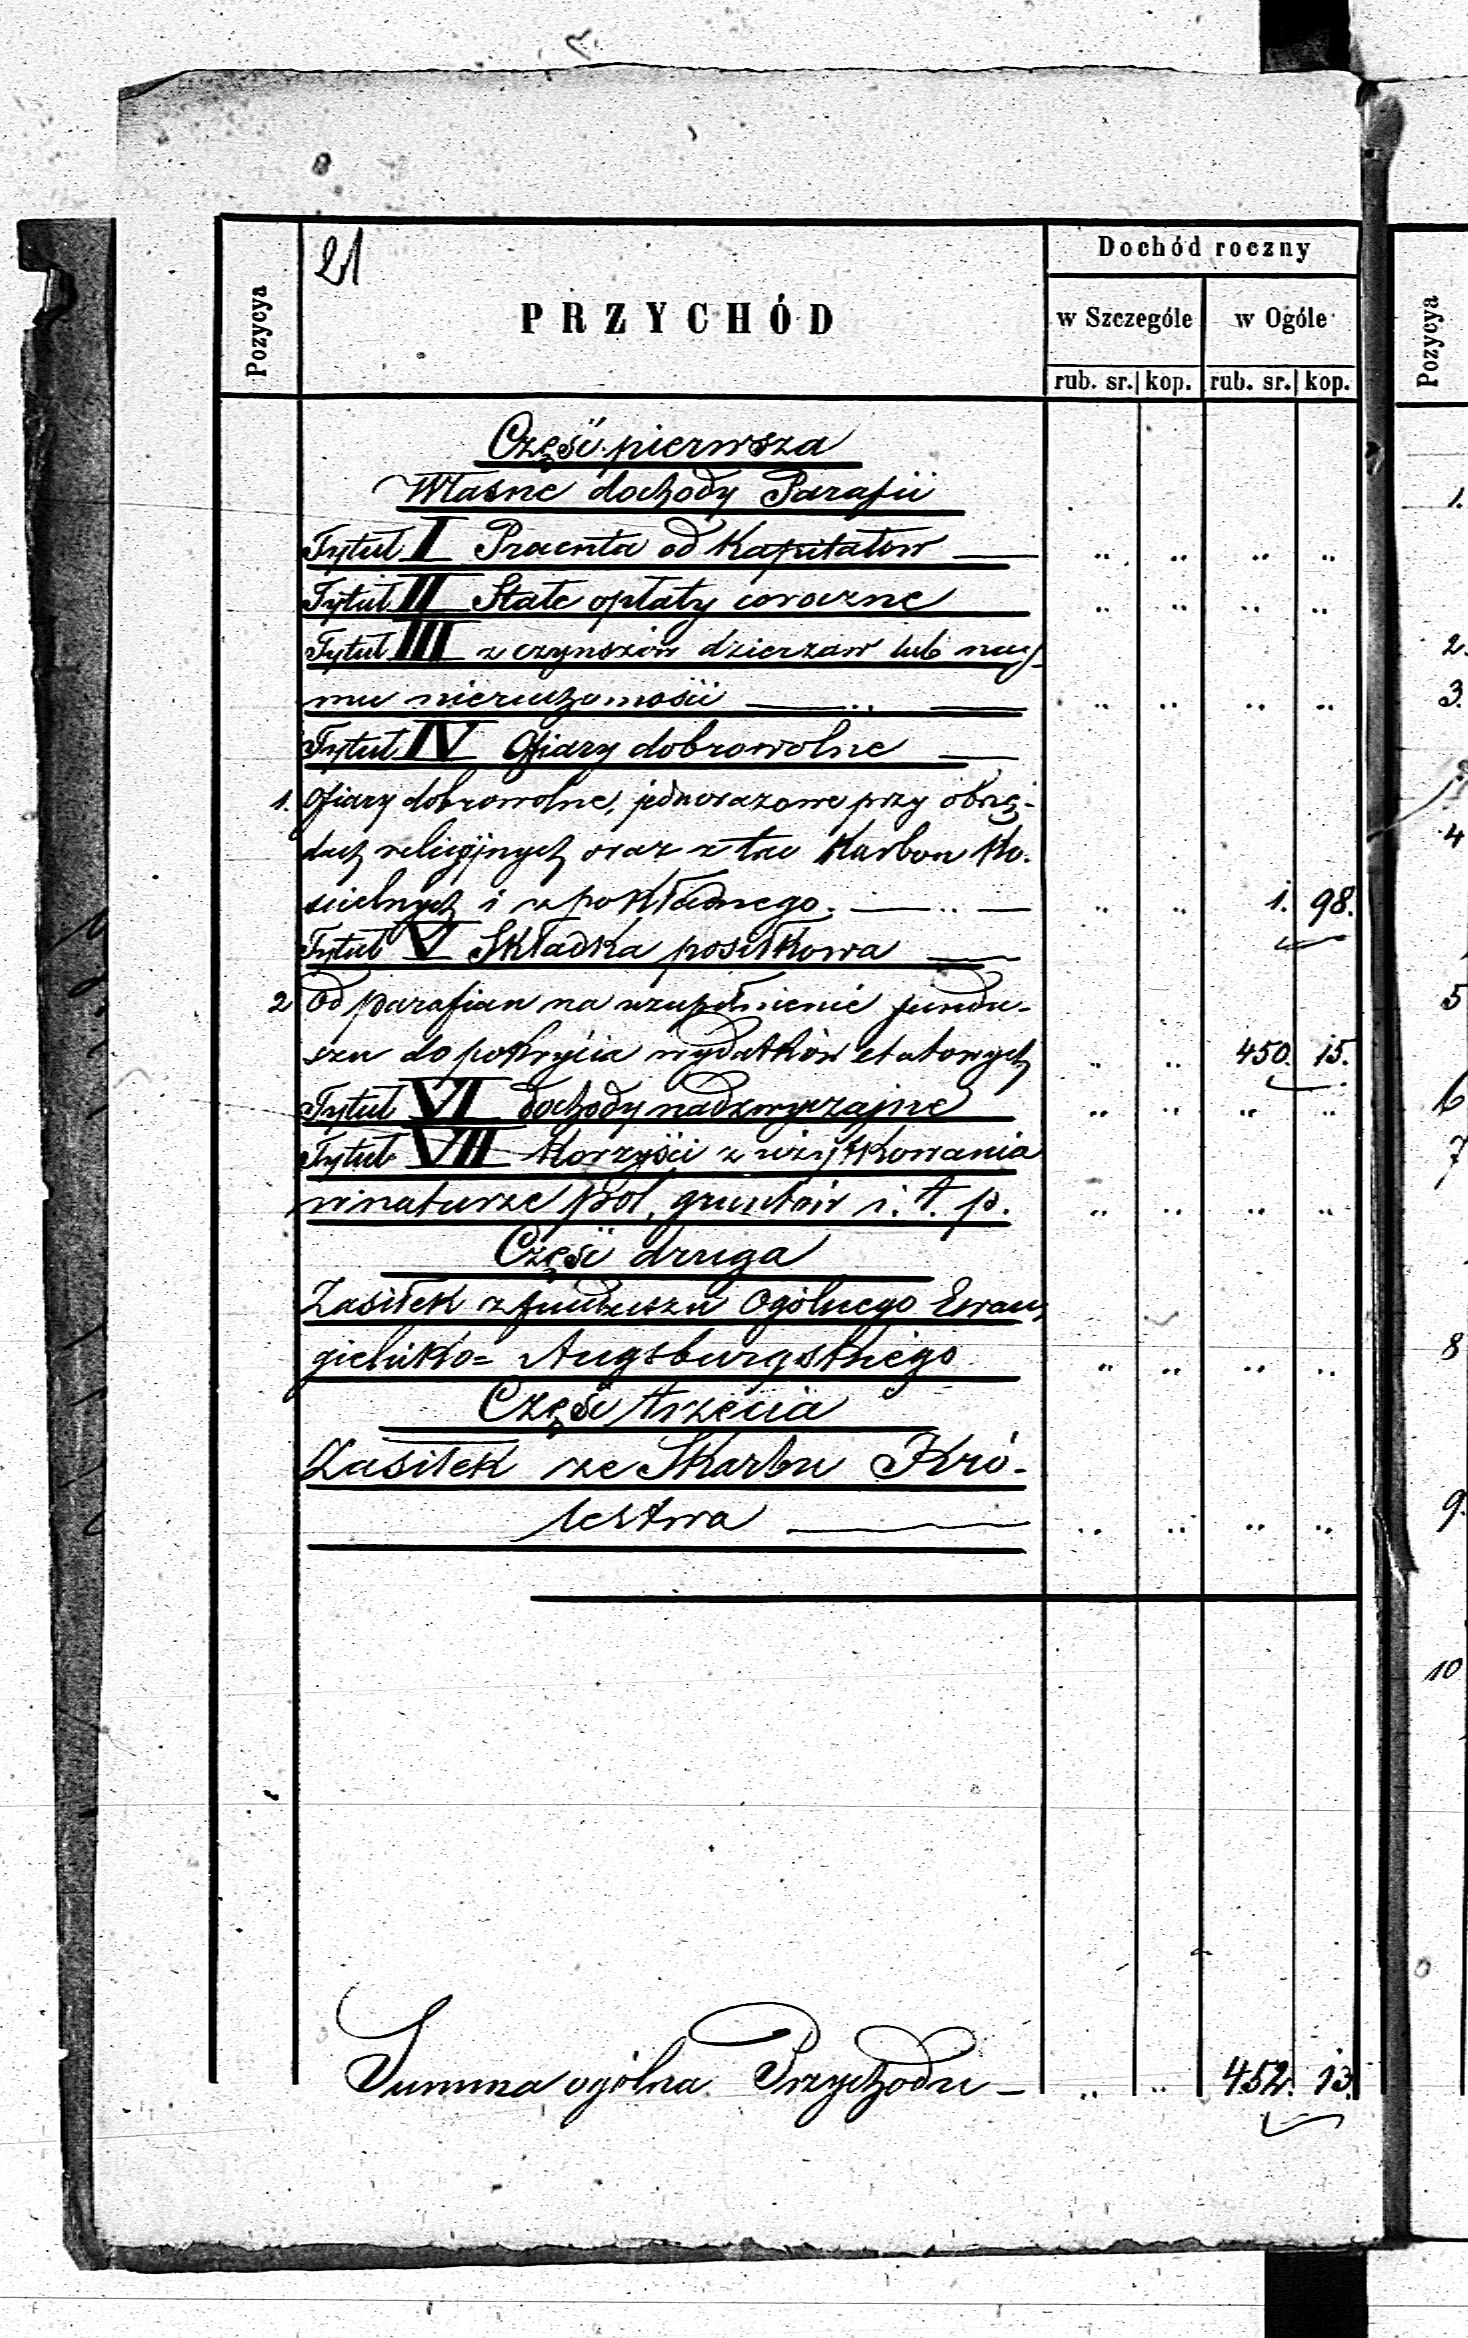 21
Pozycya
PRZYCHÓD
Dochód roczny
w Szczególe w Ogóle
rub. sr. kop. rub. sr. kop.
Część pierwsza
Własne dochody Parafii
Tytuł I Procenta od Kapitałów — .. .. .. ..
Tytuł II Stałe opłaty coroczne .. .. .. ..
Tytuł III z czynszów dzierzaw lub naj-
mu nieruchomości — .. — .. .. .. ..
Tytuł IV Ofiary dobrowolne —
1. Ofiary dobrowolne, jednorazowe przy obrzę-
dach religijnych oraz z tac Karbon Ko-
scielnych i z pokładnego. — .. — .. .. 1. 98.
Tytuł V Składka posiłkowa —
2 Od parafian na uzupełnienie fundu-
szu do pokrycia wydatków etatowych .. .. 450. 15.
Tytuł VI Dochody nadzwyczajne .. .. .. ..
Tytuł VII Korzyści z użytkowania
w naturze pol, gruntów i. t. p. .. .. .. ..
Część druga
Zasiłek z funduszu Ogólnego Ewan-
gielicko= Augsburgskiego .. .. .. ..
Część trzecia
Zasiłek ze Skarbu Kró-
lestwa — .. .. .. ..
Summa ogólna Przychodu — .. .. 452. 13.
Pozycya
1.
2.
3.
4
5
6
7
8
9.
10